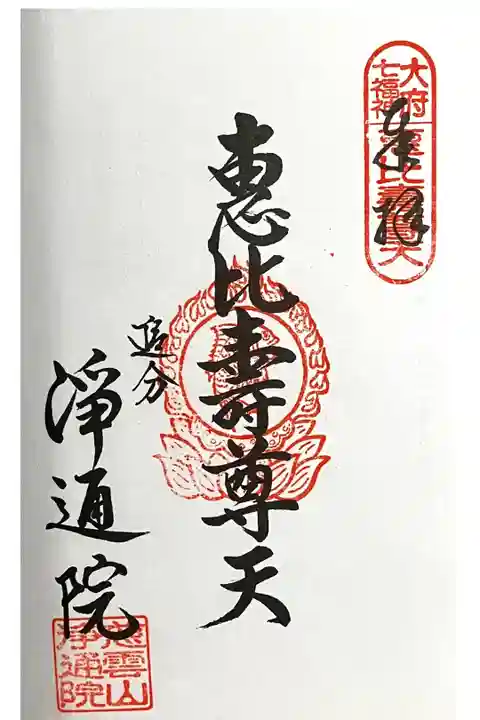 大府
七福神
恵比寿尊天
奉拝
恵比寿尊天
追分
淨通院
慈雲山
浄通院